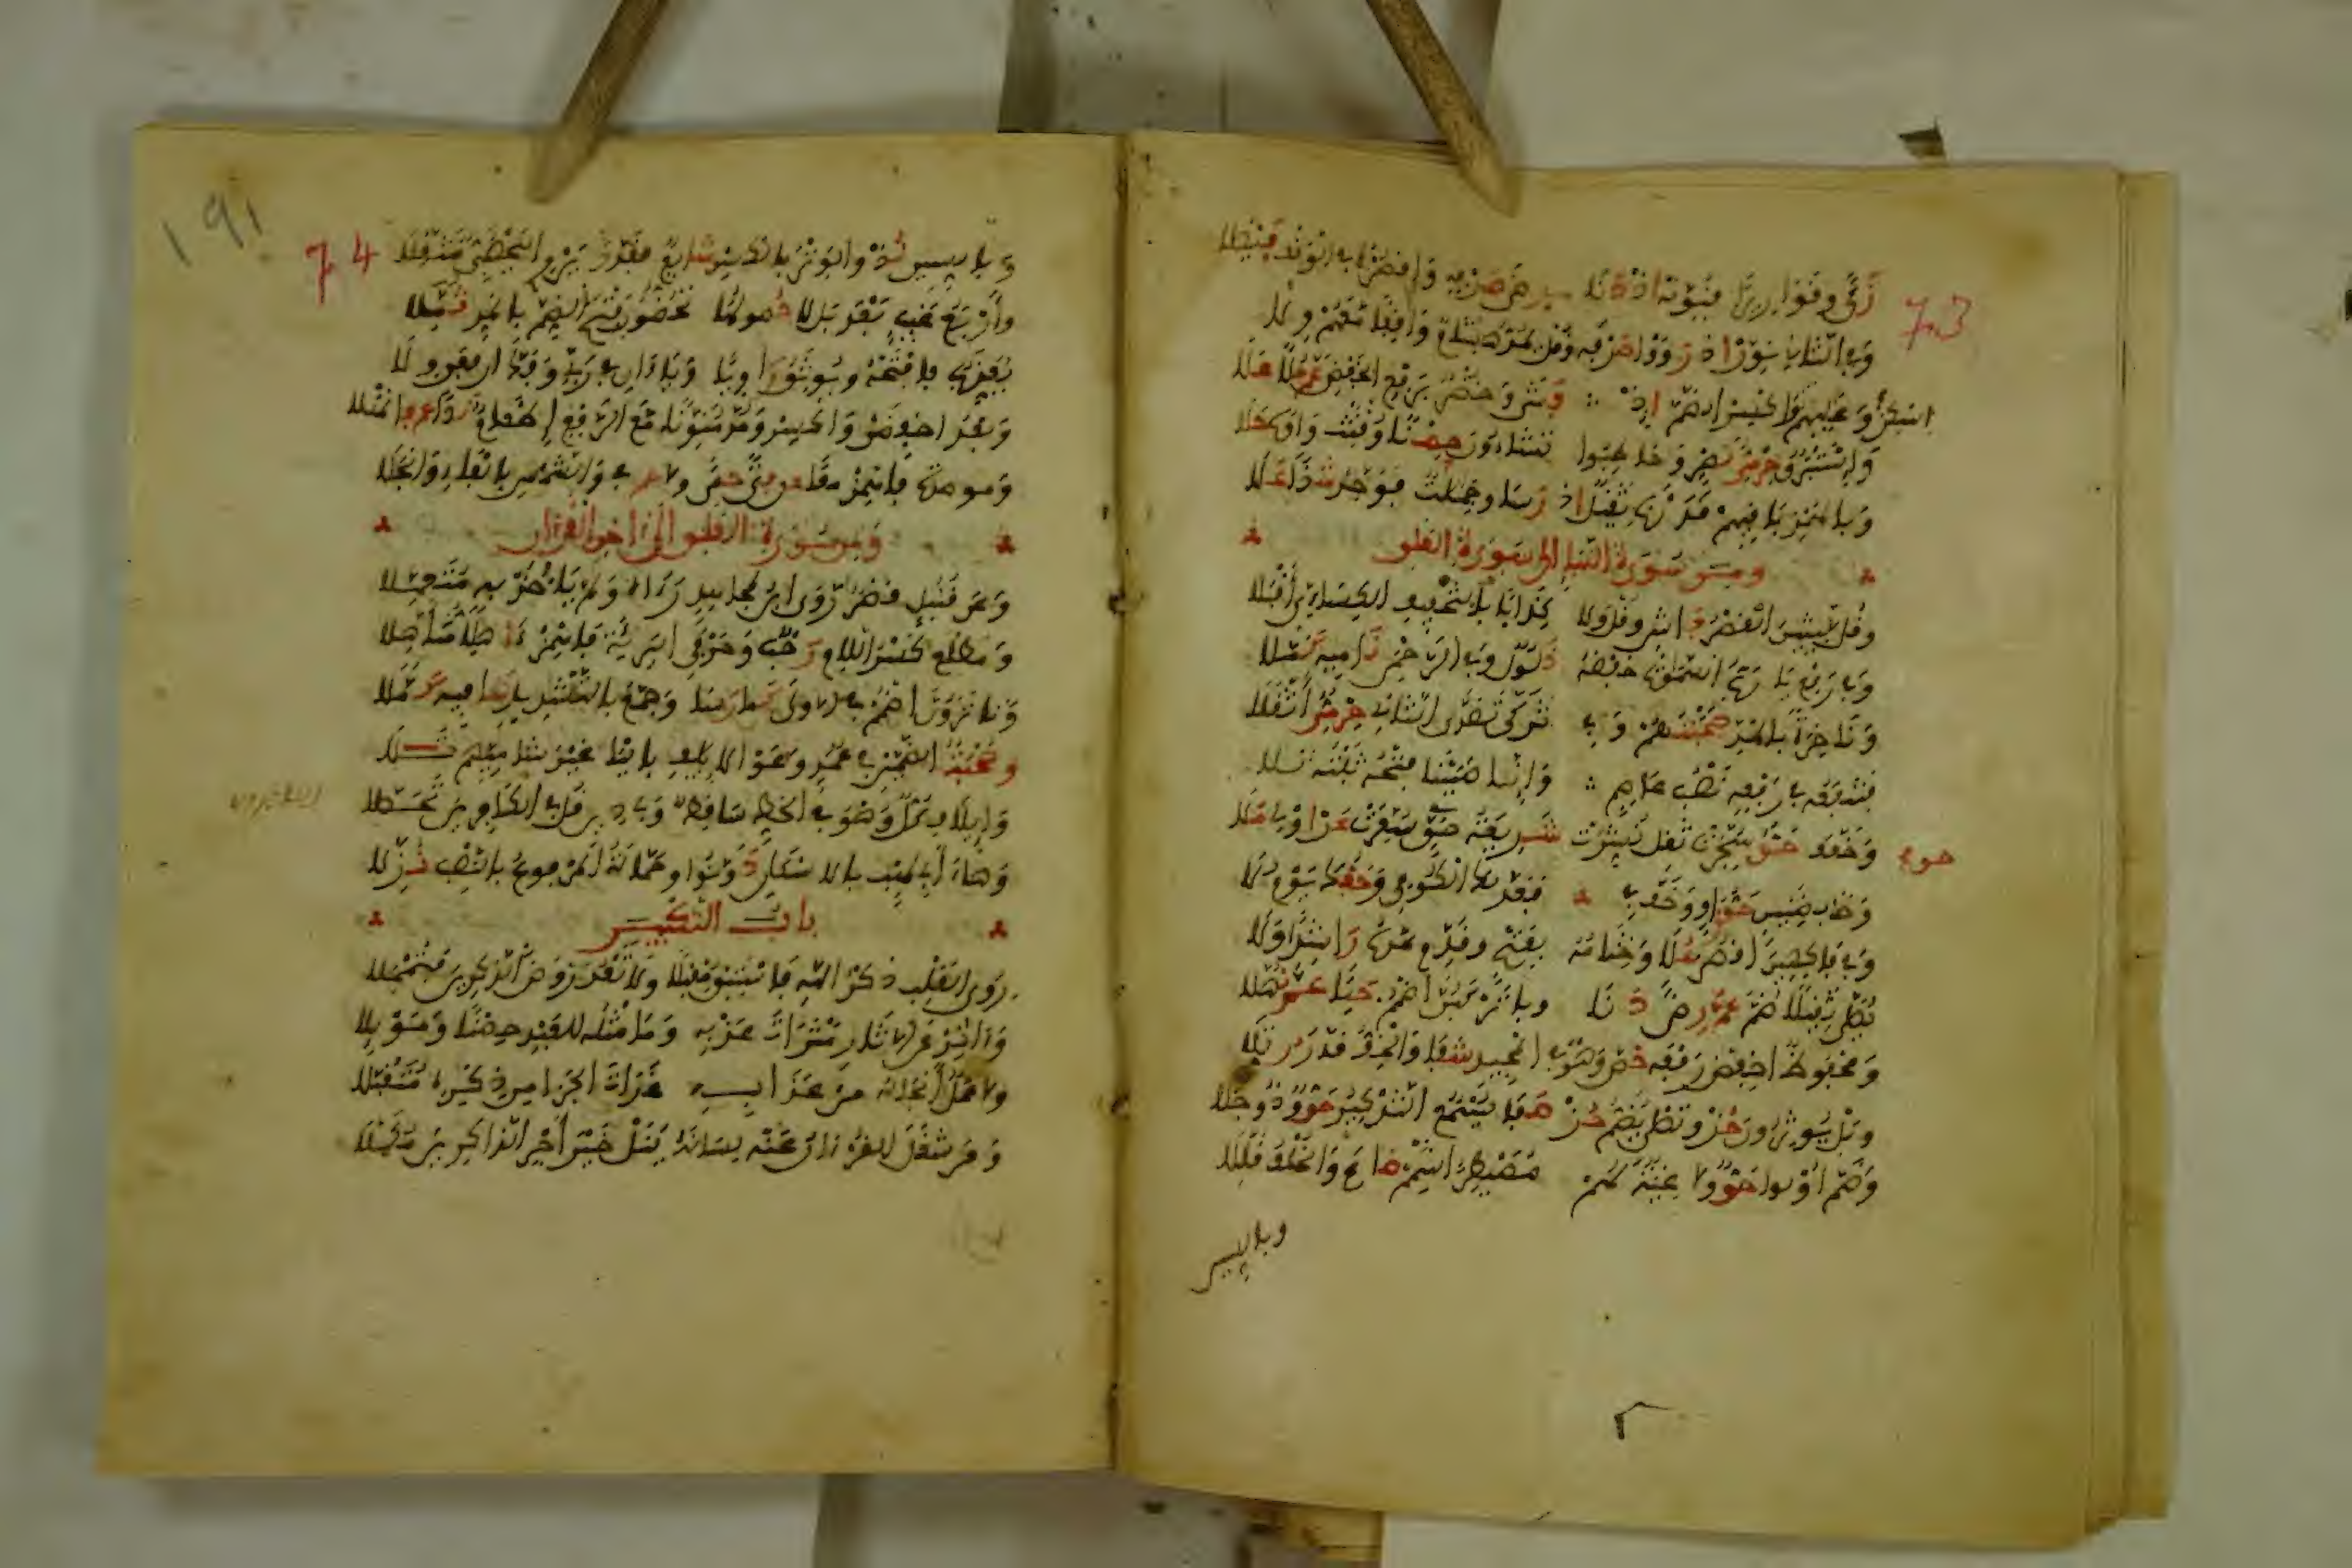 73
زكا وقواريرا فنونه اذ دنا رضى صرفه واقصره في الوقف فيصلا
وفي الثان نون اذ رووا صرفه وقل يمد هشام واقفا معهم ولا
وعاليهم اسكن واكسر الضم اذ فشا وخضر برفع الخفض عم حلا علا
واستبرق حرمي نصر وخاطبوا تشاءون حصن وقتت واوه حلا
وبالهمز باقيهم قدرنا ثقيلا اذ رسا وجملت فوحد شذا علا
ومن سورة النبإ الى سورة العلق
وقل لبثين القصر فاش وقل ولا كذابا بتخفيف الكسائي اقبلا
وفي رفع با رب السموت خفضه ذلول وفي الرحمن ناميه كملا
وناخرة بالمد صحبتهم وفي تزكى تصدى الثان حرمي اثقلا
فتنفعه في رفعه نصب عاصم وانا صببنا فتحه ثبته تلا
وخفف حق سجرت ثقل نشرت شريعة حق سعرت عن اولي ملا
حق
وظا بضنين حق راو وخف في فعدلك الكوفي وحقك يوم لا
وفي فاكهين اقصر علا وختامه بفتح وقدم مده راشدا ولا
يصلى ثقيلا ضم عم رضى دنا وبا تركبن اضمم حيا عم نهلا
ومحفوظ اخفض رفعه خص وهو في المجيد شفا والخف قدر رتلا
وبل يوثرون حز وتصلى يضم حز صفا يسمع التذكير حق وذو جلا
وضم اولوا حق ولا غية لهم مصيطر اشمم ضاع والخلف قللا
وبالسين
191
74
وبالسين لذ والوتر بالكسر شايع فقدر يروي اليحصبي مثقلا
واربع غيب بعد بل لا حصولها تحضون فتح الضم بالمد ثملا
يعذب فافتحه ويوثق راويا وياءان في ربي وفك ارفعن ولا
وبعد اخفضن واكسر ومد منونا مع الرفع اطعام ندا عم فانهلا
وموصدة فاهمز معا عن فتى حمى ولا عم في والشمس بالفاء وانجلا
ومن سورة العلق الى اخر القرءان
وعن قنبل قصرا روى ابن مجاهد رءاه ولم ياخذ به متعملا
ومطلع كسر اللام رحب وحرفي البرية فاهمز ءاهلا متاهلا
وتا ترون اضمم في الاولى كما رسا وجمع بالتشديد شافيه كملا
وصحبة الضمين في عمد وعوا لايلف باليا غير شاميهم تلا
وايلاف كل وهو في الخط ساقط ولي دين قل في الكافرين تحصلا
وهاء ابي لهب بالاسكان دونوا وحمالة المرفوع بالنصب نزلا
باب التكبير
روى القلب ذكر الله فاستسق مقبلا ولا تعد روض الذاكرين فتمحلا
وءاثر عن الاثار مثرات عذبه وما مثله للعبد حصنا وموئلا
ولا عمل انجا له من عذابه غدات الجزا من ذكره متقبلا
ومن شغل القرءان عنه لسانه ينل خير اجر الذاكرين مكملا